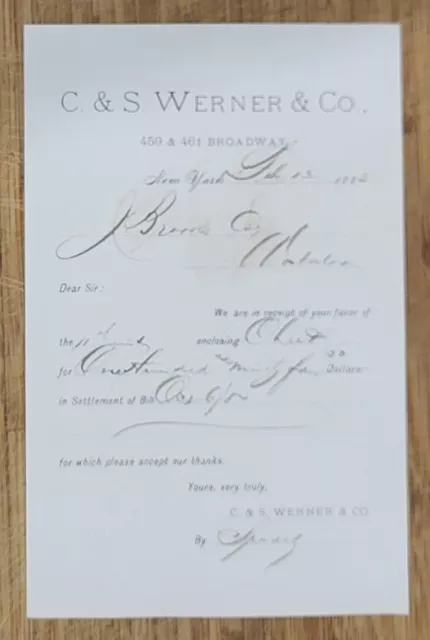 C. & S WERNER & CO.,
459 & 461 BROADWAY,
New York Feb 13
J Brooks Esq
Dear Sir:
We are in receipt of your favor of
the 11 enclosing Check
for One Hundred Dollars
in Settlement of Bill Dec 6/
for which please accept our thanks.
Yours, very truly,
C. & S. WERNER & CO
By